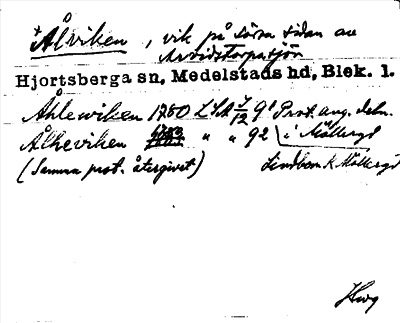 *Ålviken, vik på södra sidan av
Arvidstorpasjön
Hjortsberga sn, Medelstads hd, Blek. l.
Åhlewiken 1780 LSA 9¹ Prot. ang. deln.
Ålheviken " " 92 i Mölleryd
(Samma prot. återgivet) Lindbom K Mölleryd
Hwg